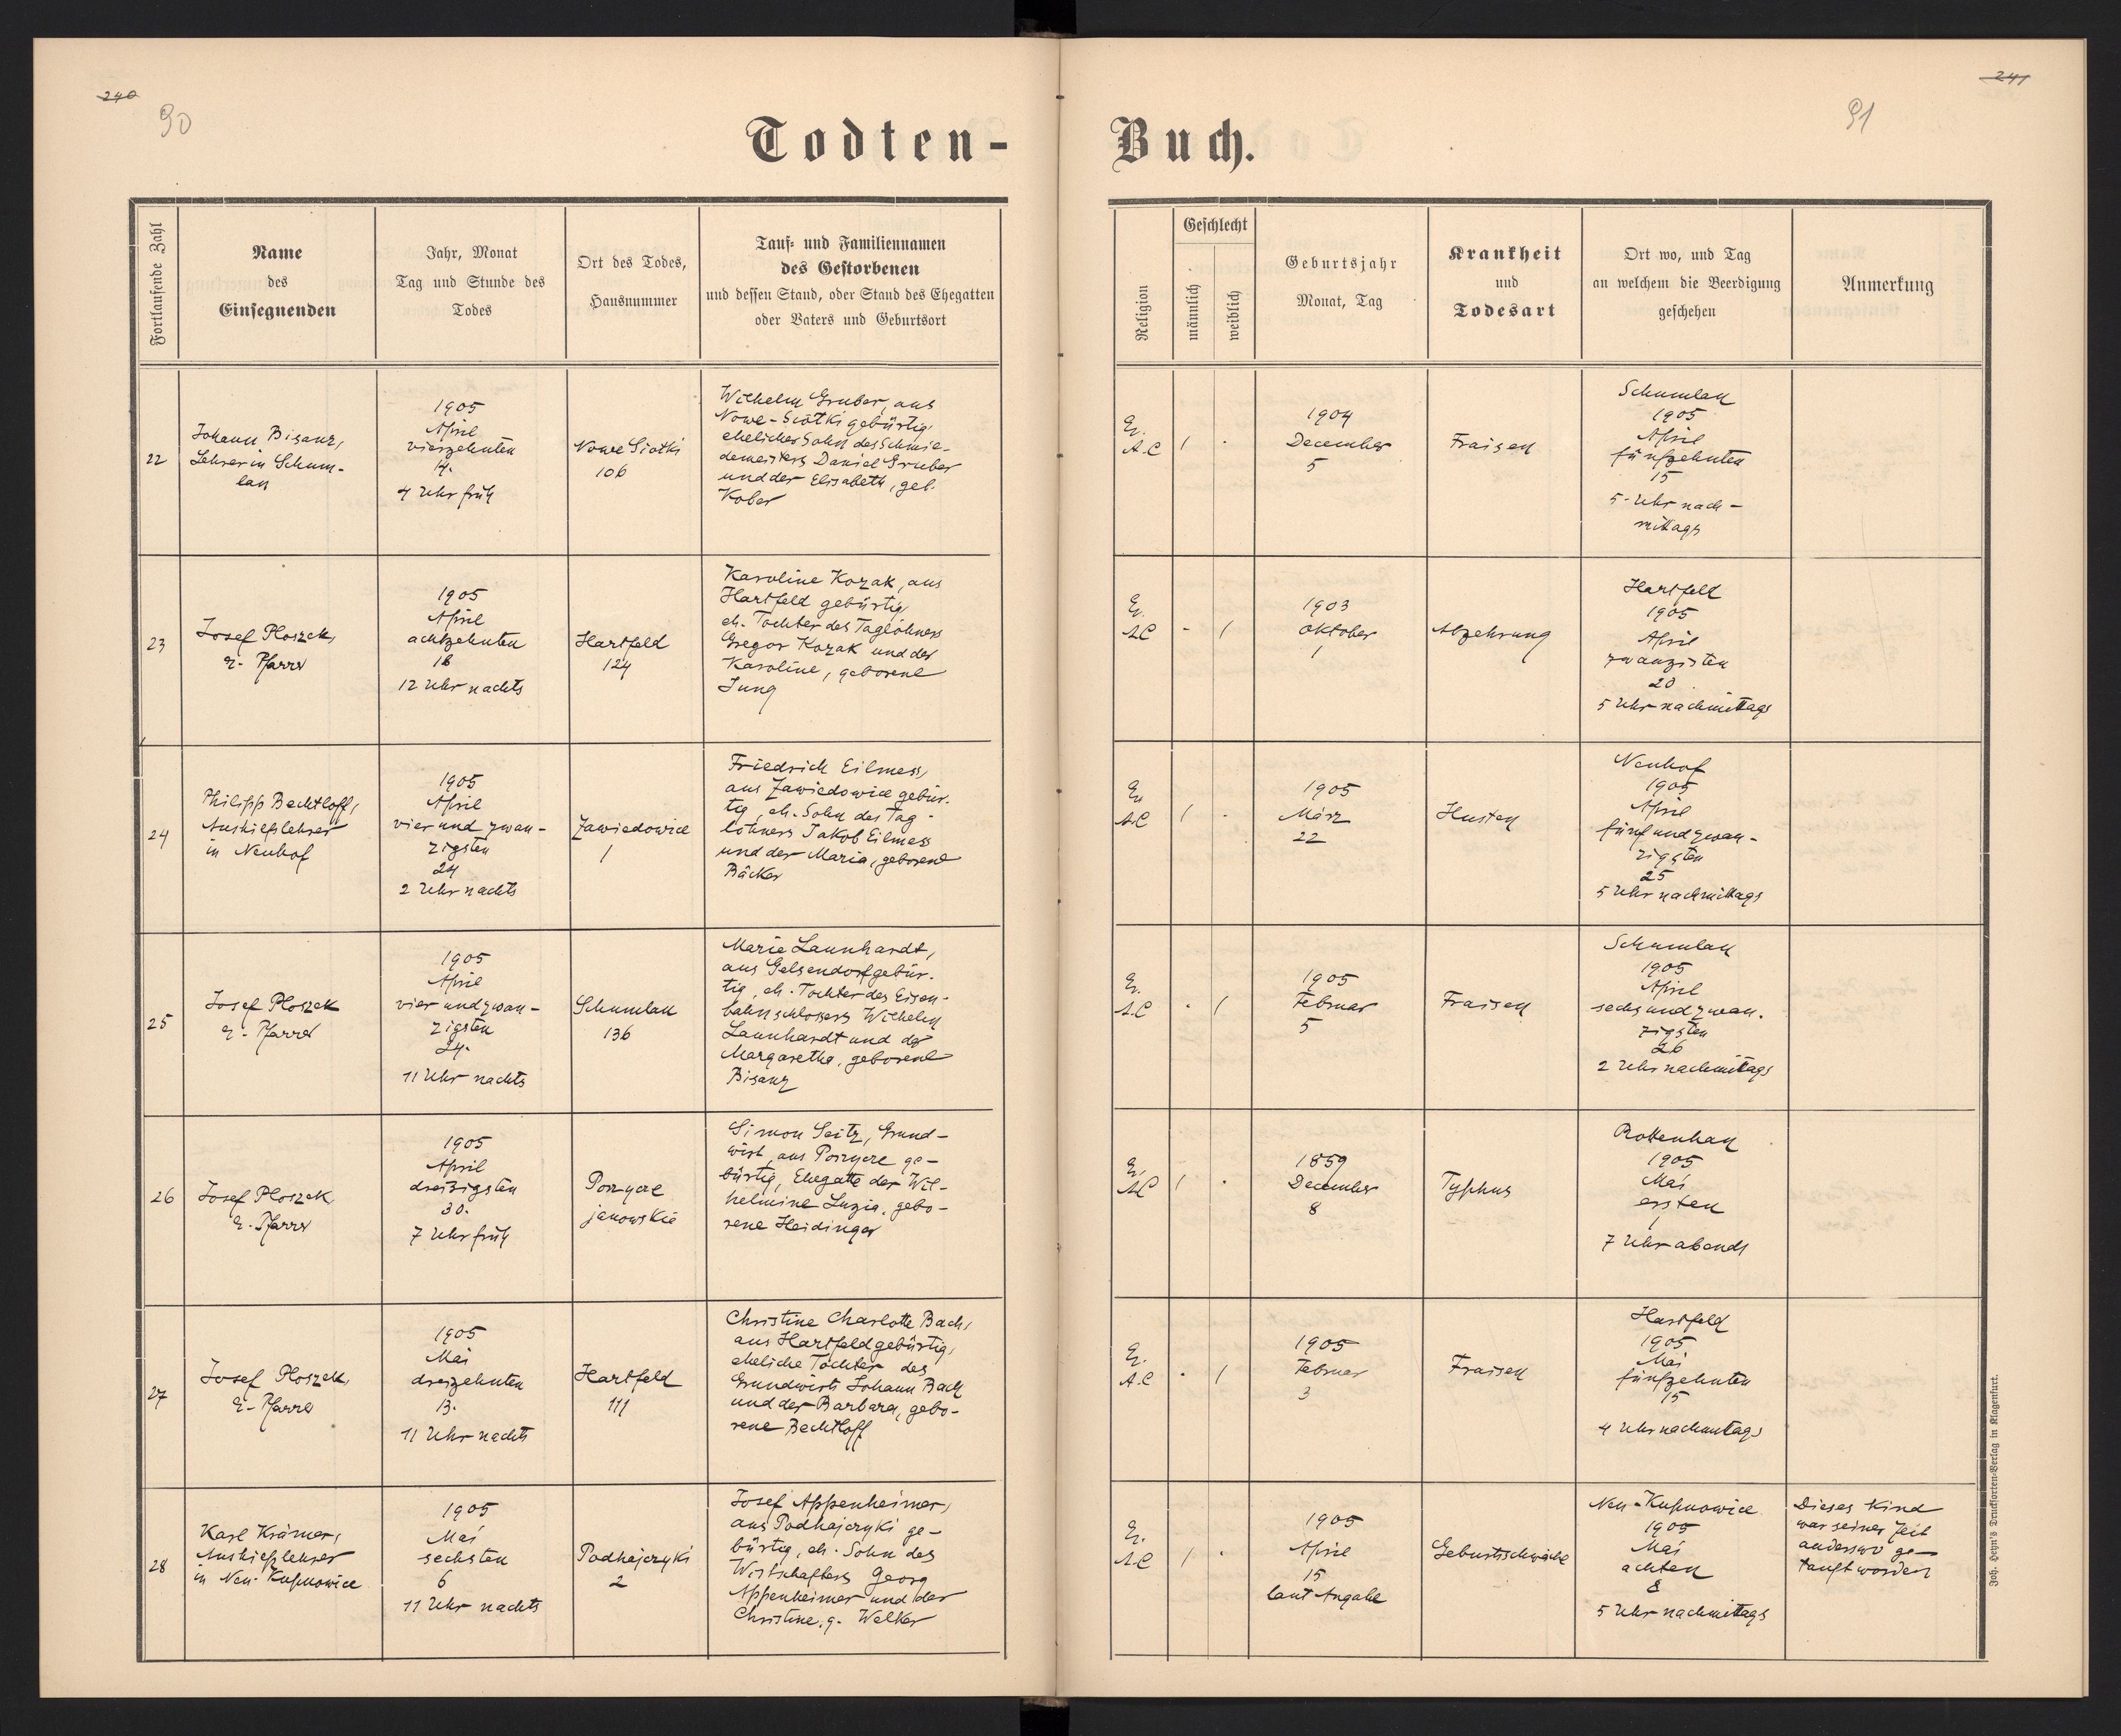 240
90
Todten-
Fortlaufende Zahl
Name
des
Einsegnenden
Jahr, Monat
Tag und Stunde des
Todes
Ort des Todes,
Hausnummer
Tauf- und Familiennamen
des Gestorbenen
und dessen Stand, oder Stand des Ehegatten
oder Vaters und Geburtsort
22
Johann Bisanz,
Lehrer in Schum-
lau
1905
April
vierzehnten
14.
4 Uhr früh
Nowe Siotki
106
Wilhelm Gruber, aus
Nowe-Siotki gebürtig,
ehelicher Sohn des Schmie-
demeisters Daniel Gruber
und der Elisabeth, geb.
Kober
23
Josef Ploszek,
e. Pfarrer
1905
April
achtzehnten
18
12 Uhr nachts
Hartfeld
124
Karoline Kozak, aus
Hartfeld gebürtig,
eh. Tochter des Taglöhners
Gregor Kozak und der
Karoline, geborene
Jung
24
Philipp Bechtloff,
Aushilfslehrer
in Neuhof
1905
April
vier und zwan-
zigsten
24
2 Uhr nachts
Zawiedowice
1
Friedrich Eilmess,
aus Zawiedowice gebür-
tig, eh. Sohn des Tag-
löhners Jakob Eilmess
und der Maria, geborene
Bäcker
25
Josef Ploszek
e. Pfarrer
1905
April
vier und zwan-
zigsten
24.
11 Uhr nachts
Schumlau
136
Marie Launhardt,
aus Gelsendorf gebür-
tig, eh. Tochter des Eisen-
bahnschlossers Wilhelm
Launhardt und der
Margaretha, geborene
Bisanz
26
Josef Ploszek
e. Pfarrer
1905
April
dreißigsten
30.
7 Uhr früh
Porzycze
janowskie
Simon Seitz, Grund-
wirt, aus Porzycze ge-
bürtig, Ehegatte der Wil-
helmine Luzia, gebo-
rene Heidinger
27
Josef Ploszek,
e. Pfarrer
1905
Mai
dreizehnten
13.
11 Uhr nachts
Hartfeld
111
Christine Charlotte Bach,
aus Hartfeld gebürtig,
eheliche Tochter des
Grundwirts Johann Bach
und der Barbara, gebo-
rene Bechtloff
28
Karl Krämer,
Aushilfslehrer
in Neu-Kupnowice
1905
Mai
sechsten
6
11 Uhr nachts
Podhajczyki
2
Josef Appenheimer,
aus Podhajczyki ge-
bürtig, eh. Sohn des
Wirtschafters Georg
Appenheimer und der
Christine, g. Welker
241
91
Buch.
Religion
Geschlecht
männlich
weiblich
Geburtsjahr
Monat, Tag
Krankheit
und
Todesart
Ort wo, und Tag
an welchem die Beerdigung
geschehen
Anmerkung
Ev.
A.C
1
.
1904
December
5
Fraisen
Schumlau
1905
April
fünfzehnten
15
5-Uhr nach-
mittags
Ev.
A.C
-
1
1903
Oktober
1
Abzehrung
Hartfeld
1905
April
zwanzigsten
20
5 Uhr nachmittags
Ev
A.C
1
.
1905
März
22
Husten
Neuhof
1905
April
fünf und zwan-
zigsten
25
5 Uhr nachmittags
Ev.
A.C
.
1
1905
Februar
5
Fraisen
Schumlau
1905
April
sechs und zwan-
zigsten
26
2 Uhr nachmittags
Ev.
A.C
1
.
1859
December
8
Typhus
Rottenhan
1905
Mai
ersten
1
7 Uhr abends
Ev.
A.C
.
1
1905
Februar
3
Fraisen
Hartfeld
1905
Mai
fünfzehnten
15
4 Uhr nachmittags
Ev.
A.C
1
.
1905
April
15
laut Angabe
Geburtsschwäche
Neu-Kupnowice
1905
Mai
achten
8
5 Uhr nachmittags
Dieses Kind
war seiner Zeit
anderswo ge-
tauft worden
Joh. Heyn's Drucksorten-Verlag in Klagenfurt.